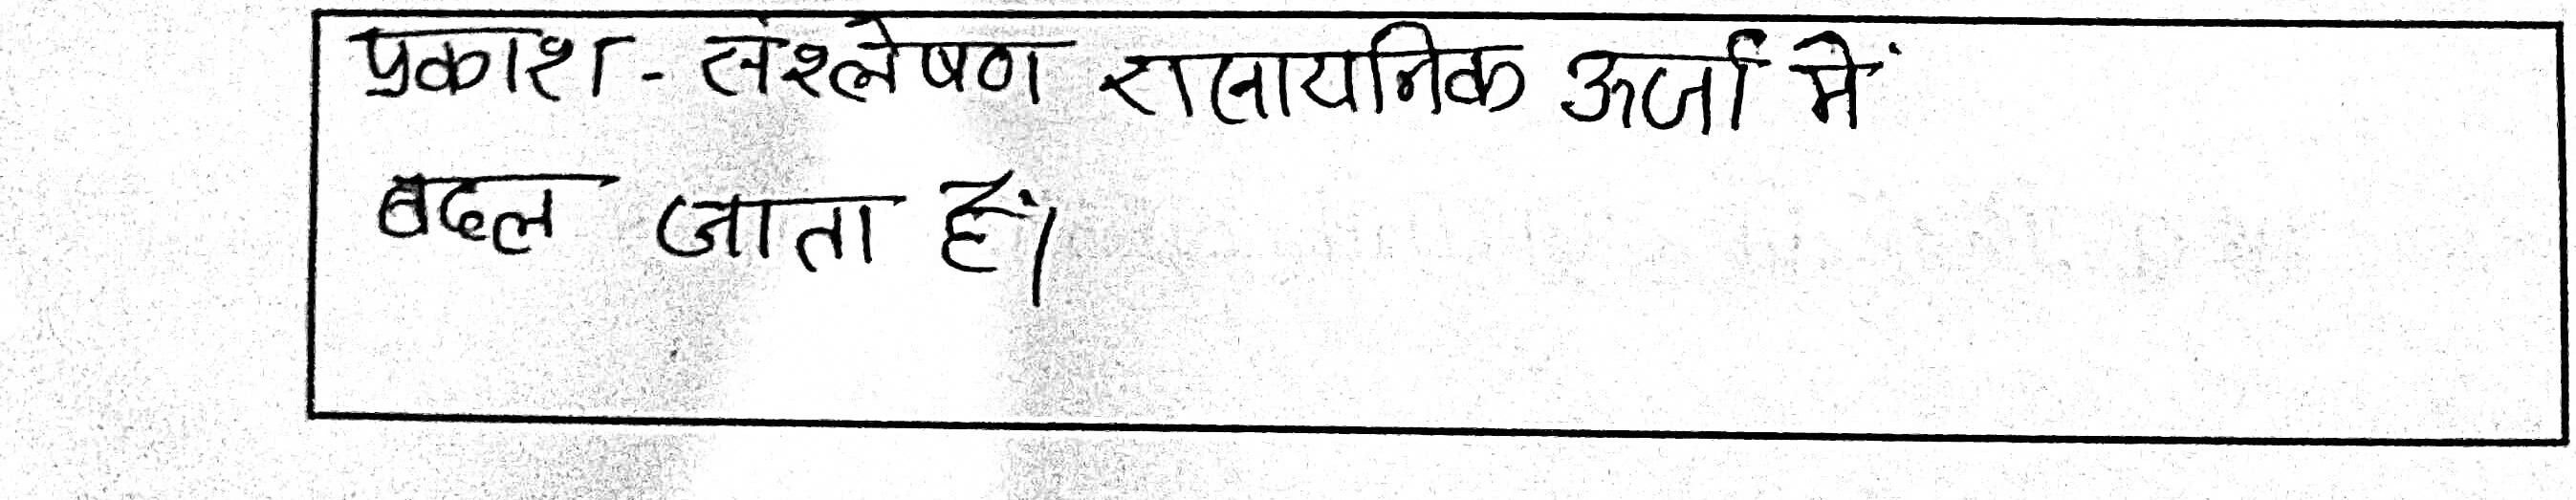 प्रकाश - संश्लेषण रासायनिक ऊर्जा में
बदल जाता हैं।